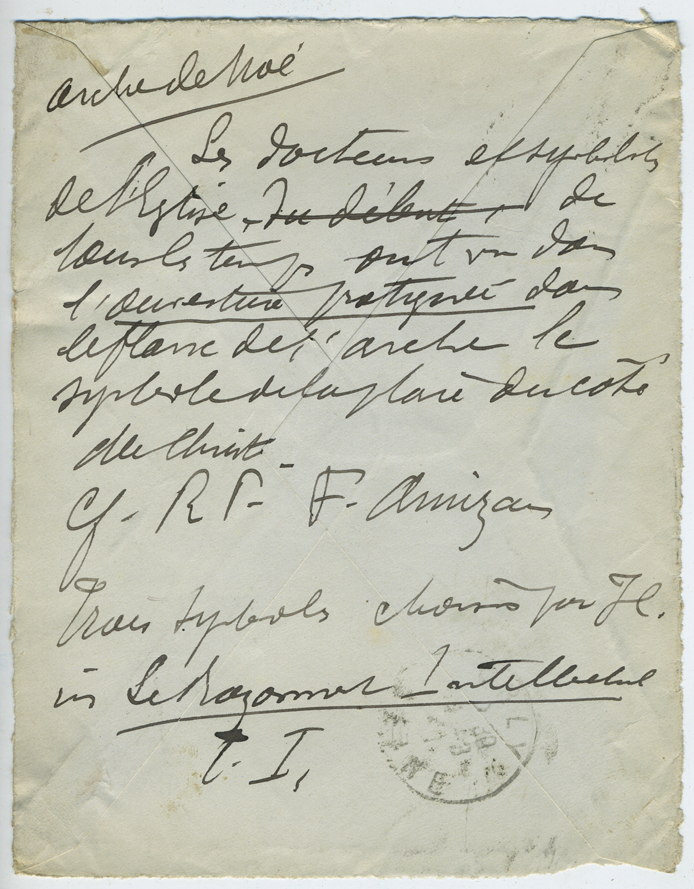 Arche de Noé
Les docteurs et symbolistes
de l'Eglise, du début, de
tous les temps ont vu dans
l'ouverture pratiquée dans
le flanc de l'arche le
symbole de la plaie du côté
du Christ.
Cf. R P. F. Anizan
Trois symboles choisis par J C.
in Le Rayonnement Intellectuel
T. I,